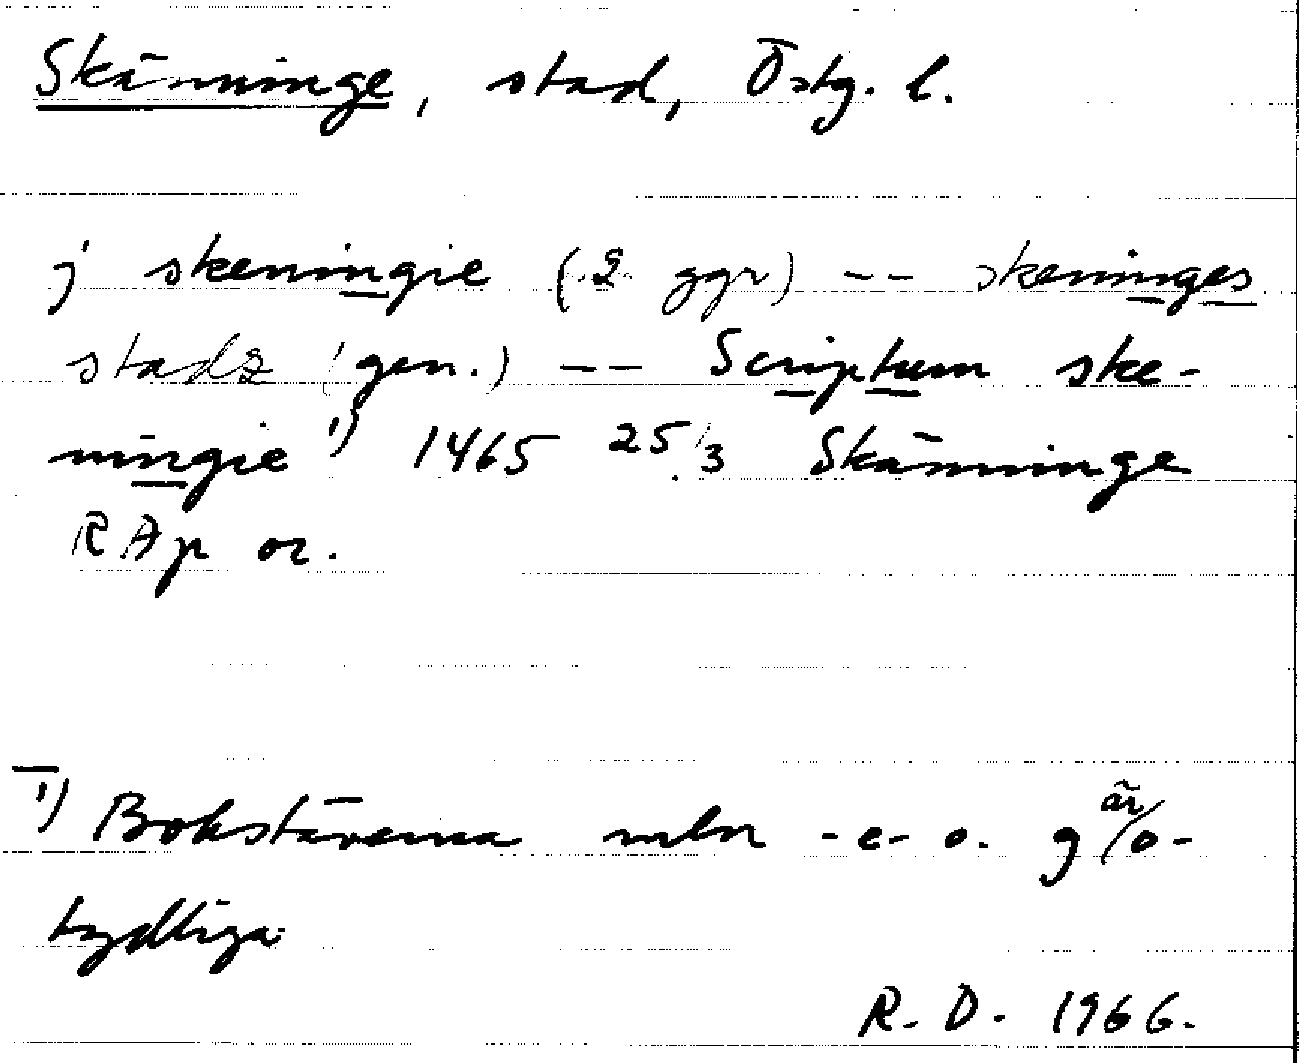 Skänninge, stad, Östg. l.
j skeningie (2 ggr) -- skeninges
stads (gen.) -- Scriptum ske-
ningie 1) 1465 25/3 Skänninge
RAp or.
1) Bokstäverna mln -e- o. g är o-
tydliga
R. D. 1966.